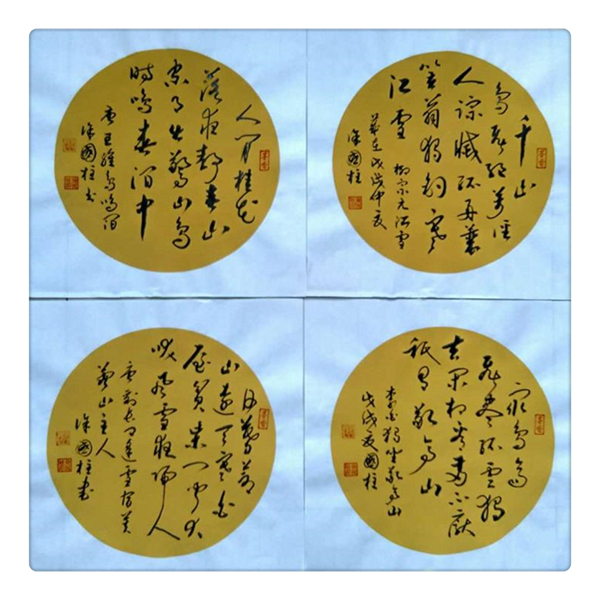 人閒桂花
落夜靜春山
空月出驚山鳥
時鳴春澗中
唐王維鳥鳴澗
徐國柱书
千山
鳥飛絕萬徑
人踪滅孤舟蓑
笠翁獨釣寒
江雪
柳宗元江雪
歲在戊戌仲夏
徐國柱
日暮蒼
山遠天寒白
屋貧柴門聞犬
吠風雪夜歸人
唐劉長卿逢雪宿芙
蓉山主人
徐國柱书
眾鳥高
飛盡孤雲獨
去閑相看兩不厭
衹有敬亭山
李白獨坐敬亭山
戊戌夏國柱